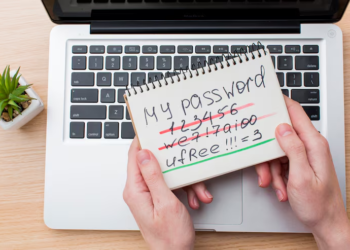 My password
123456
we?!7a:00
ufRee!!!=3